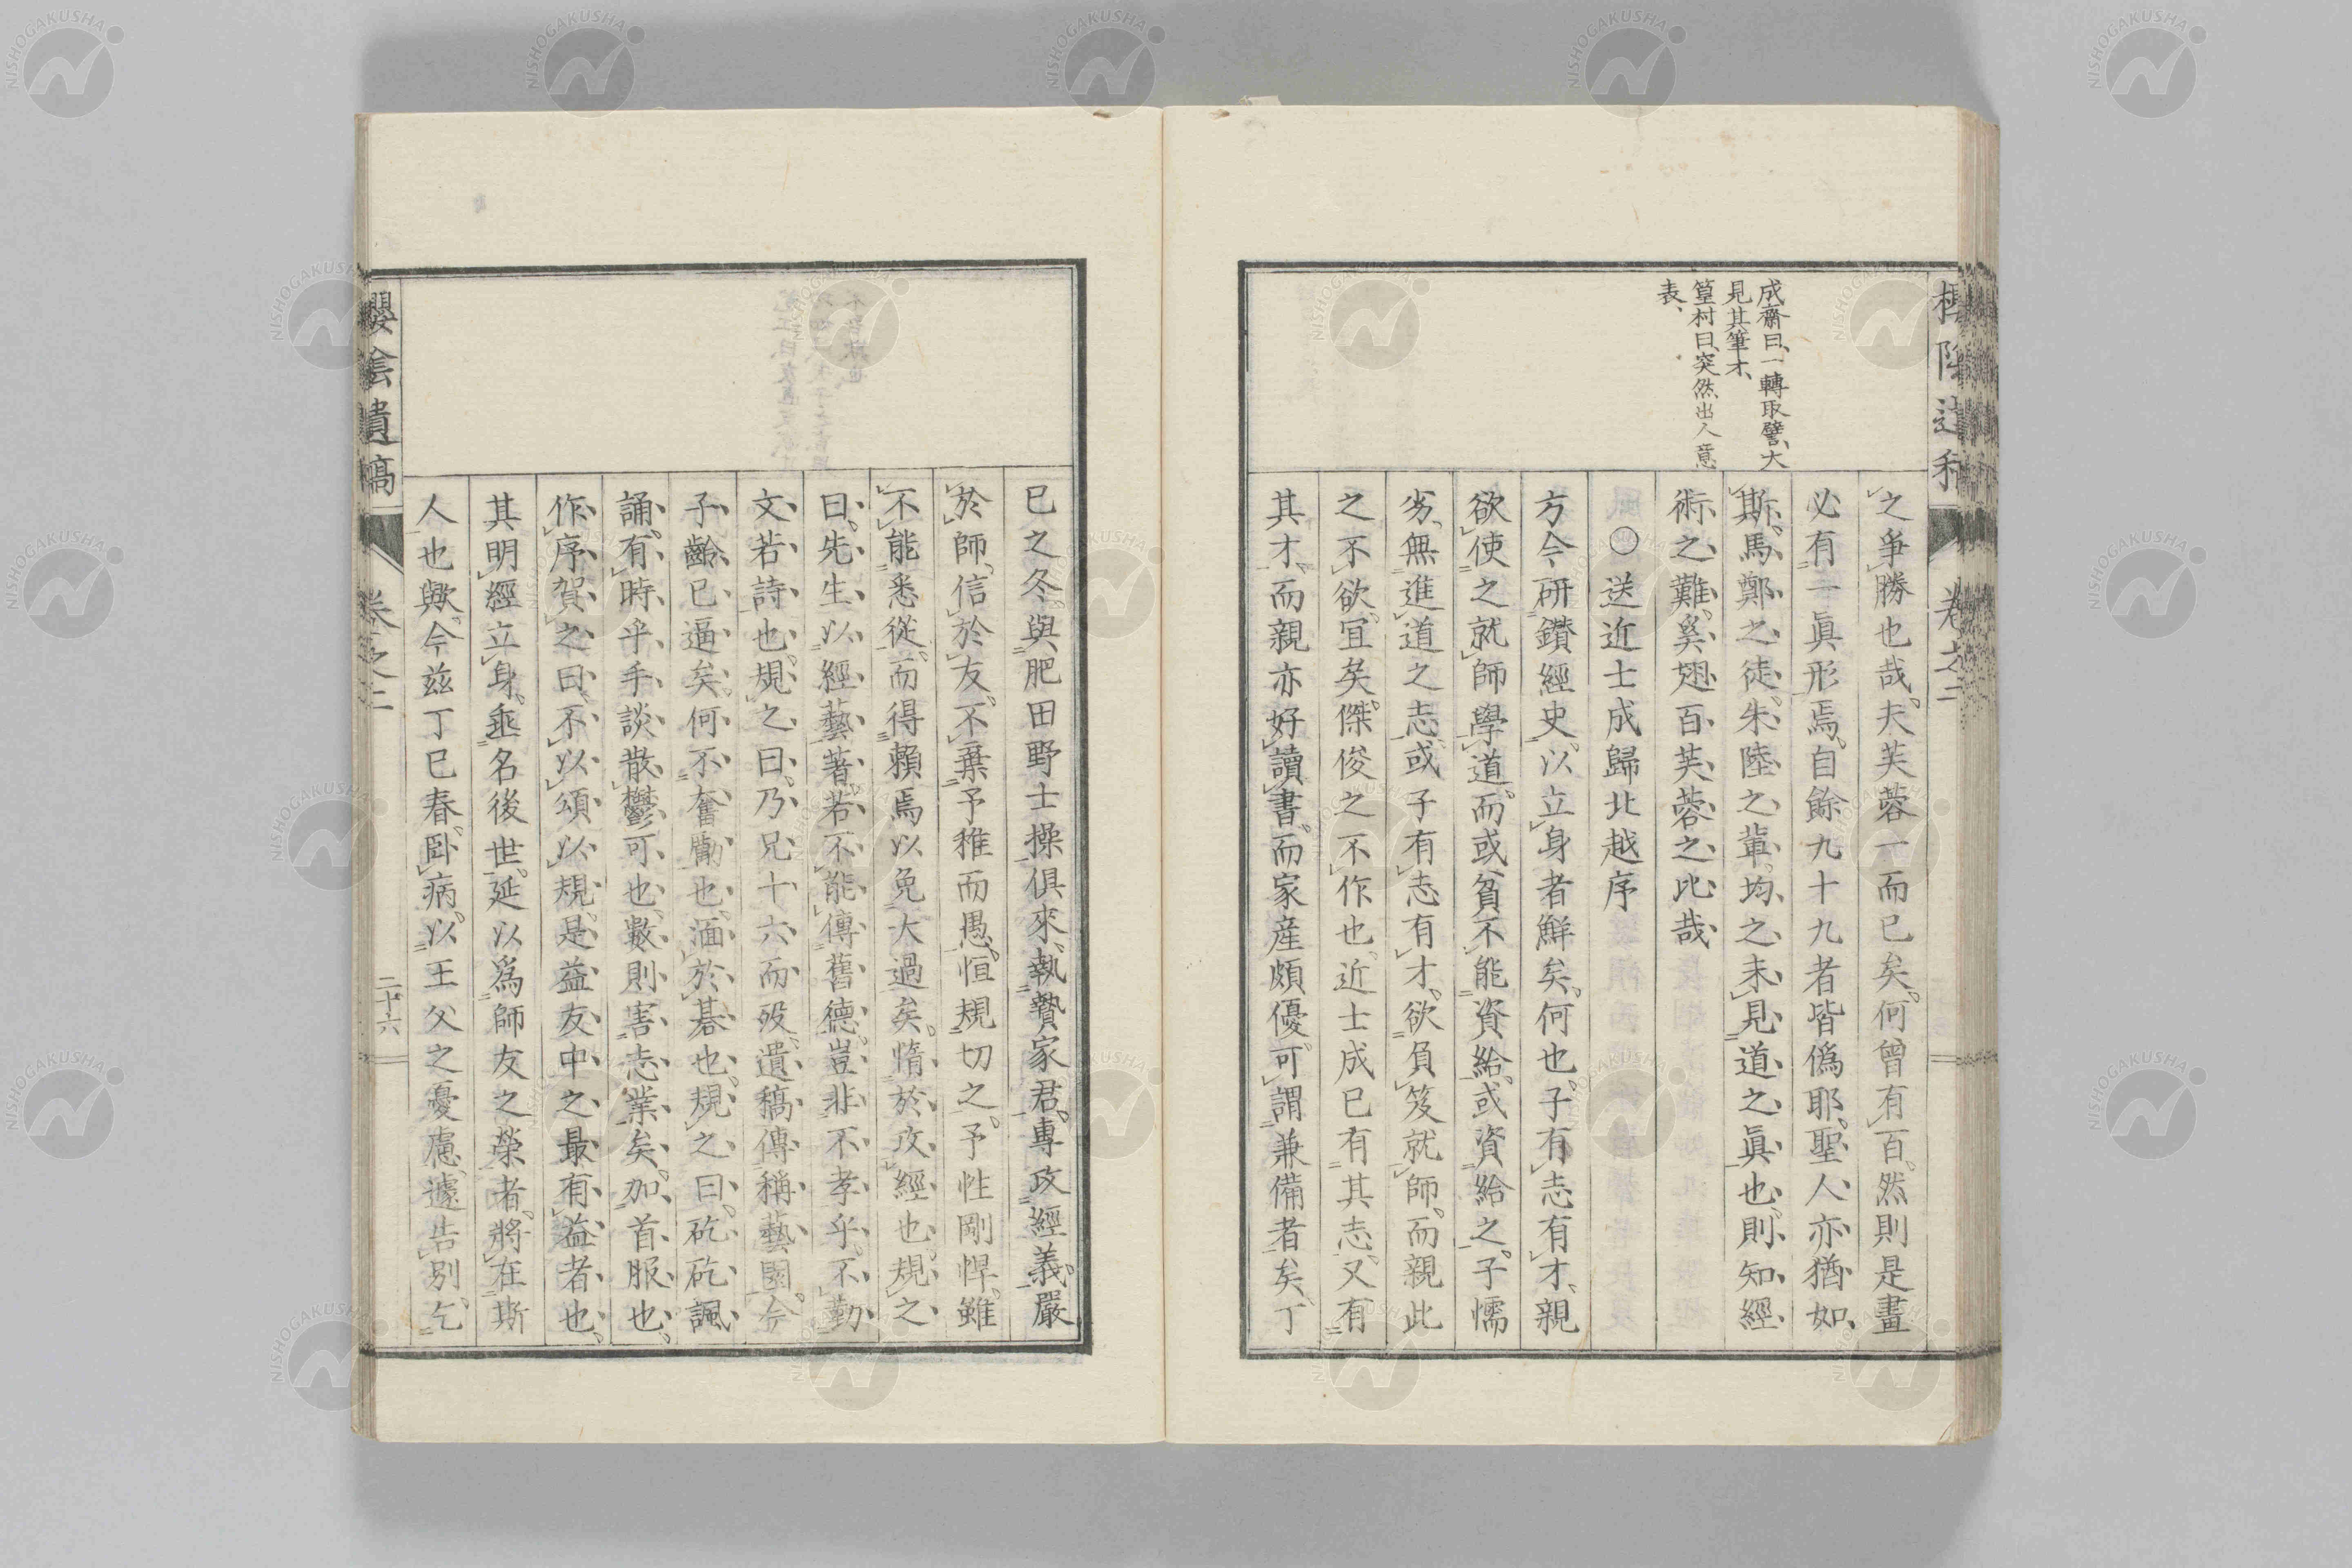 成齋曰、一轉取譬、大
見其筆才、
篁村曰、突然出人意
表、
之爭勝也哉。夫芙蓉一而已矣。何曾有百。然則是畫
必有一眞形焉。自餘九十九者皆僞耶。聖人亦猶如
斯。馬鄭之徒。朱陸之輩。均之未見道之眞也、則知經
術之難。奚翅百芙蓉之比哉
○送近士成歸北越序
方今研鑽經史、以立身者鮮矣。何也。子有志有才、親
欲使之就師學道。而或貧不能資給、或資給之。子懦
劣、無進道之志、或子有志有才。欲負笈就師。而親此
之不欲。宜矣。傑俊之不作也。近士成已有其志、又有
其才、而親亦好讀書、而家産頗優。可謂兼備者矣、丁
巳之冬。與肥田野士操俱來、執贄家君。專攻經義。嚴
於師、信於友。不棄予稚而愚。恒規切之。予性剛悍。雖
不能悉從。而得賴焉以免大過矣。惰於攻經也。規之
曰。先生以經藝著。若不能傳舊德。豈非不孝乎。不勤
文若詩也。規之曰。乃兄十六而歿。遺稿傳稱藝園。今
子齡已逼矣。何不奮勵也、湎於碁也。規之曰。矻矻諷
誦。有時乎手談散鬱可也、數則害志業矣。加首服也。
作序賀之曰、不以頌以規。是益友中之最有益者也。
其明經立身。垂名後世。延以爲師友之榮者。將在斯
人也歟。今茲丁巳春。臥病。以王父之憂慮。遽告別。乞
櫻陰遺稿
卷之二
二十六
卷之二